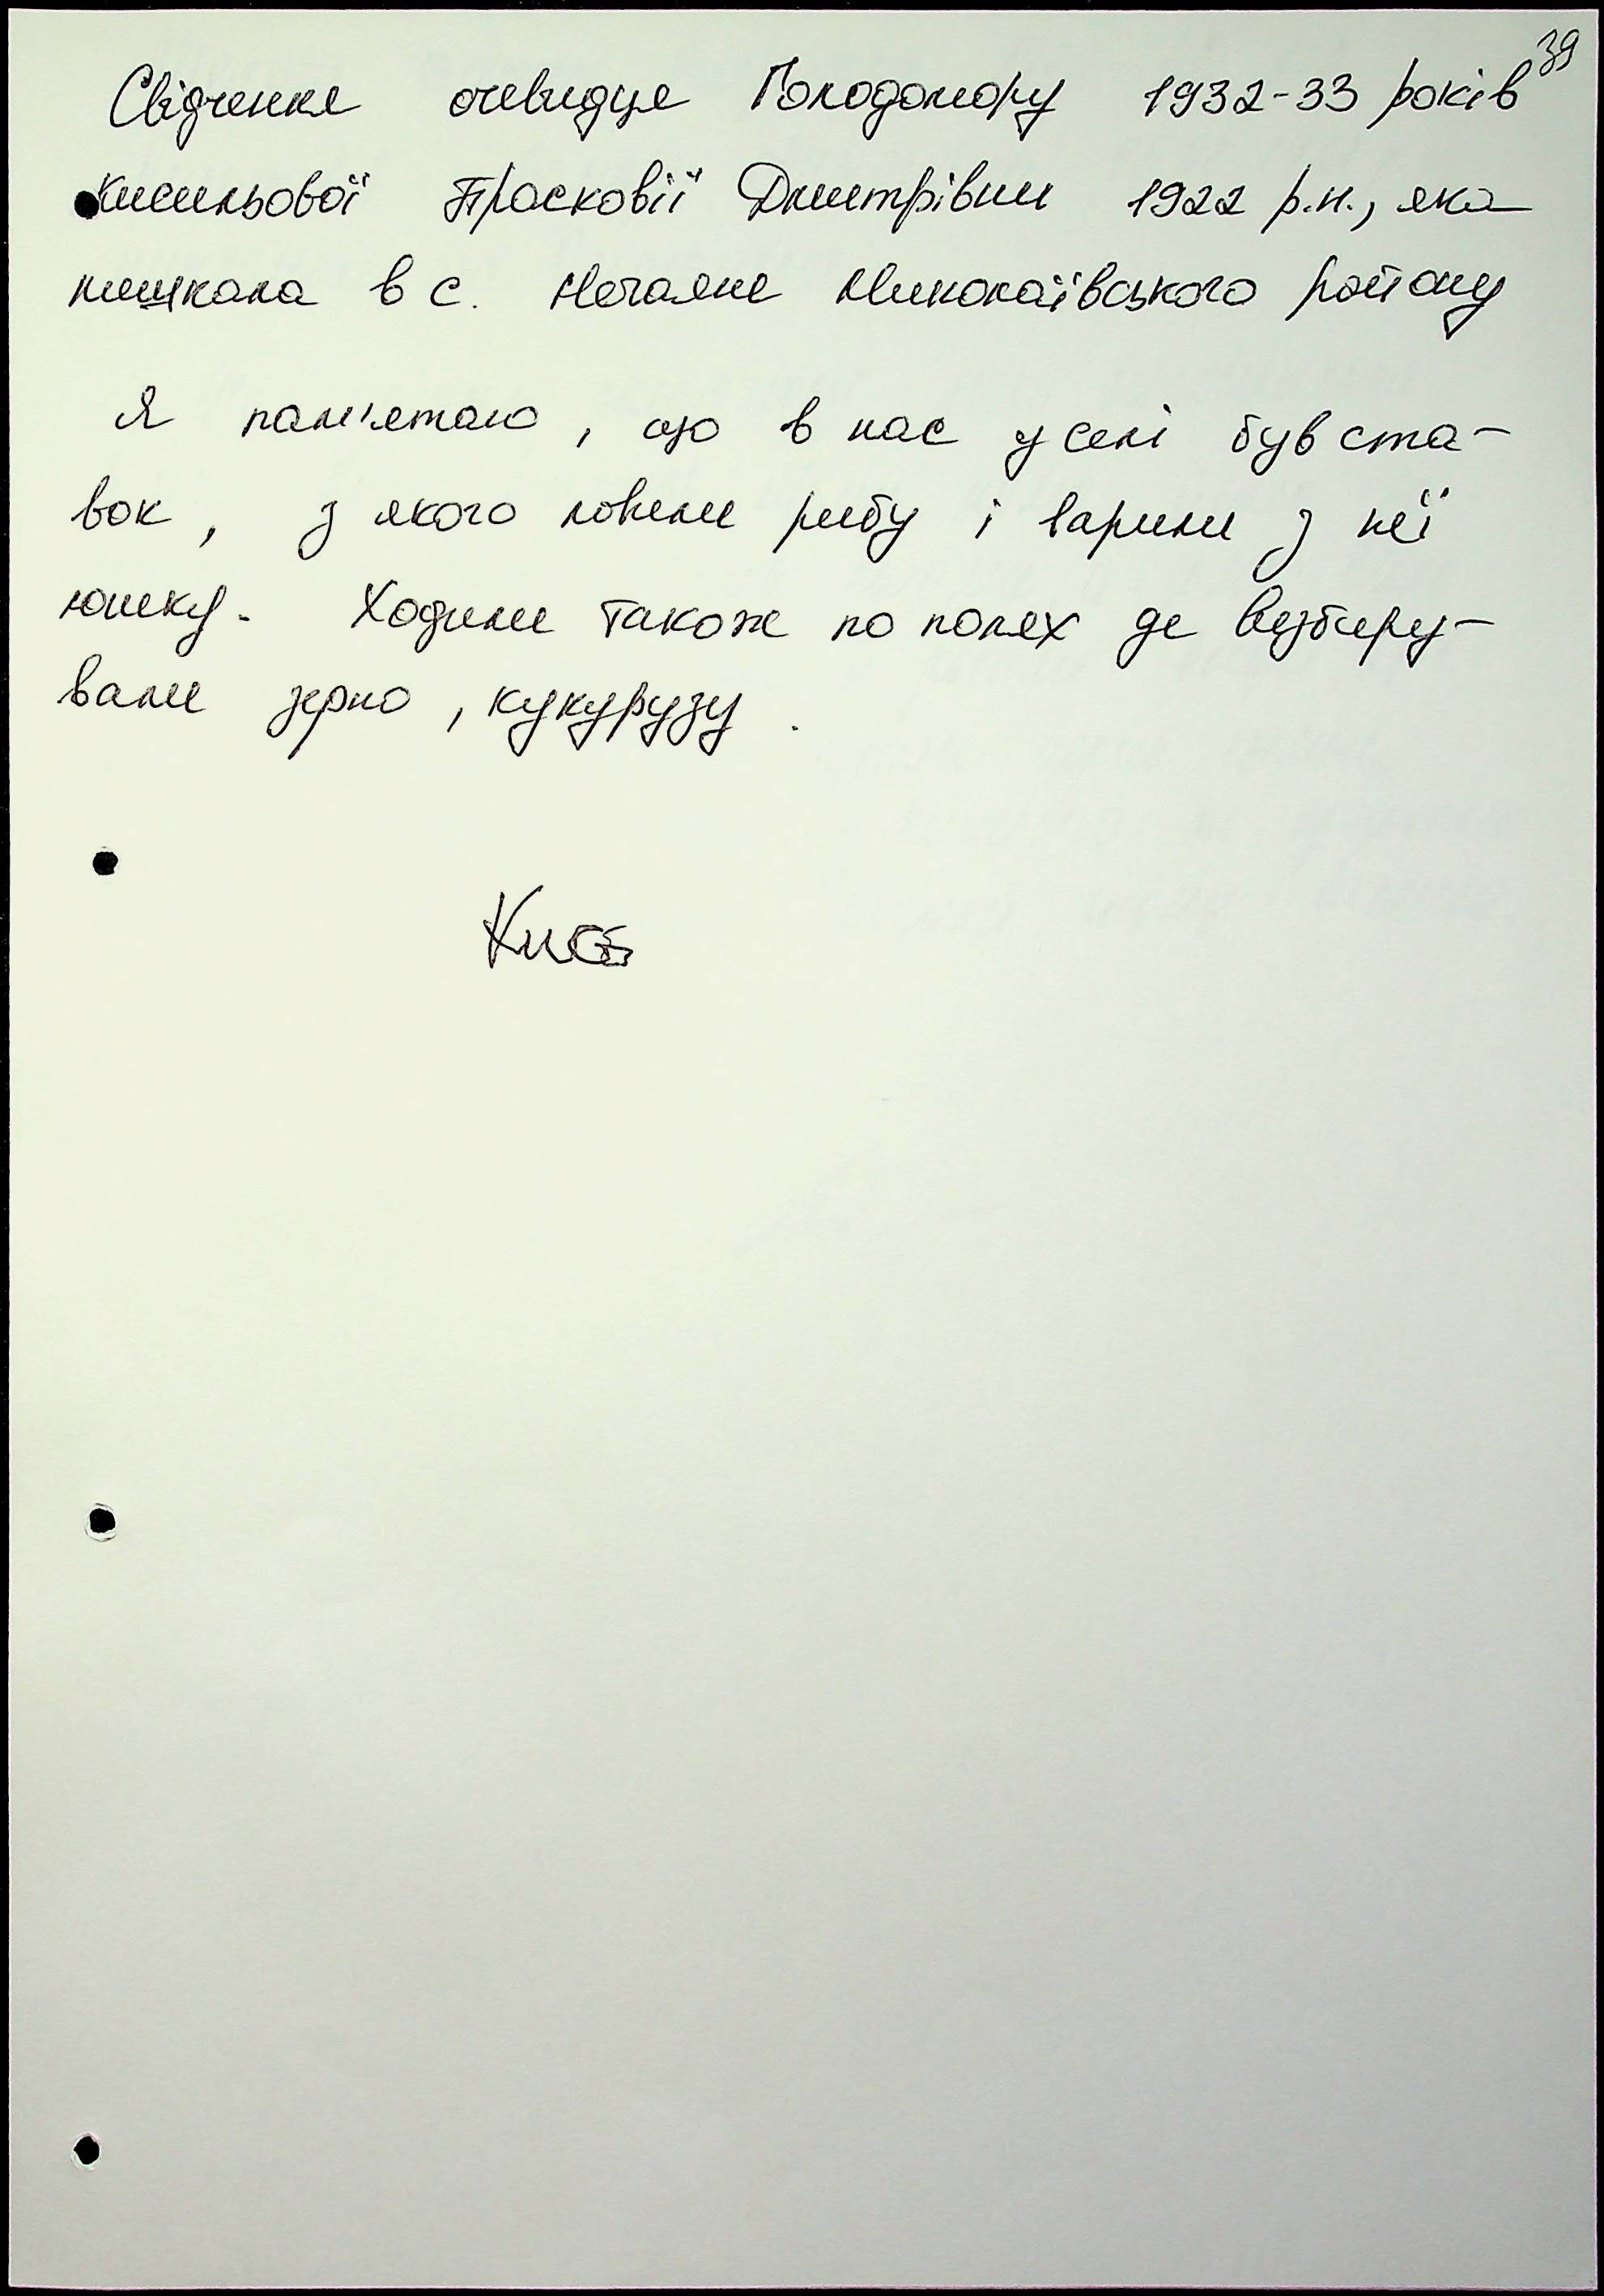 39
Свідчення очевидця Голодомору 1932-33 років
Кисильової Прасковії Дмитрівни 1922 р.н., яка
мешкала в с. Нечаяне Миколаївського району
Я пам'ятаю, що в нас у селі був ста-
вок, з якого ловили рибу і варили з неї
юшку. Ходили також по полях де визбиру-
вали зерно, кукурузу.